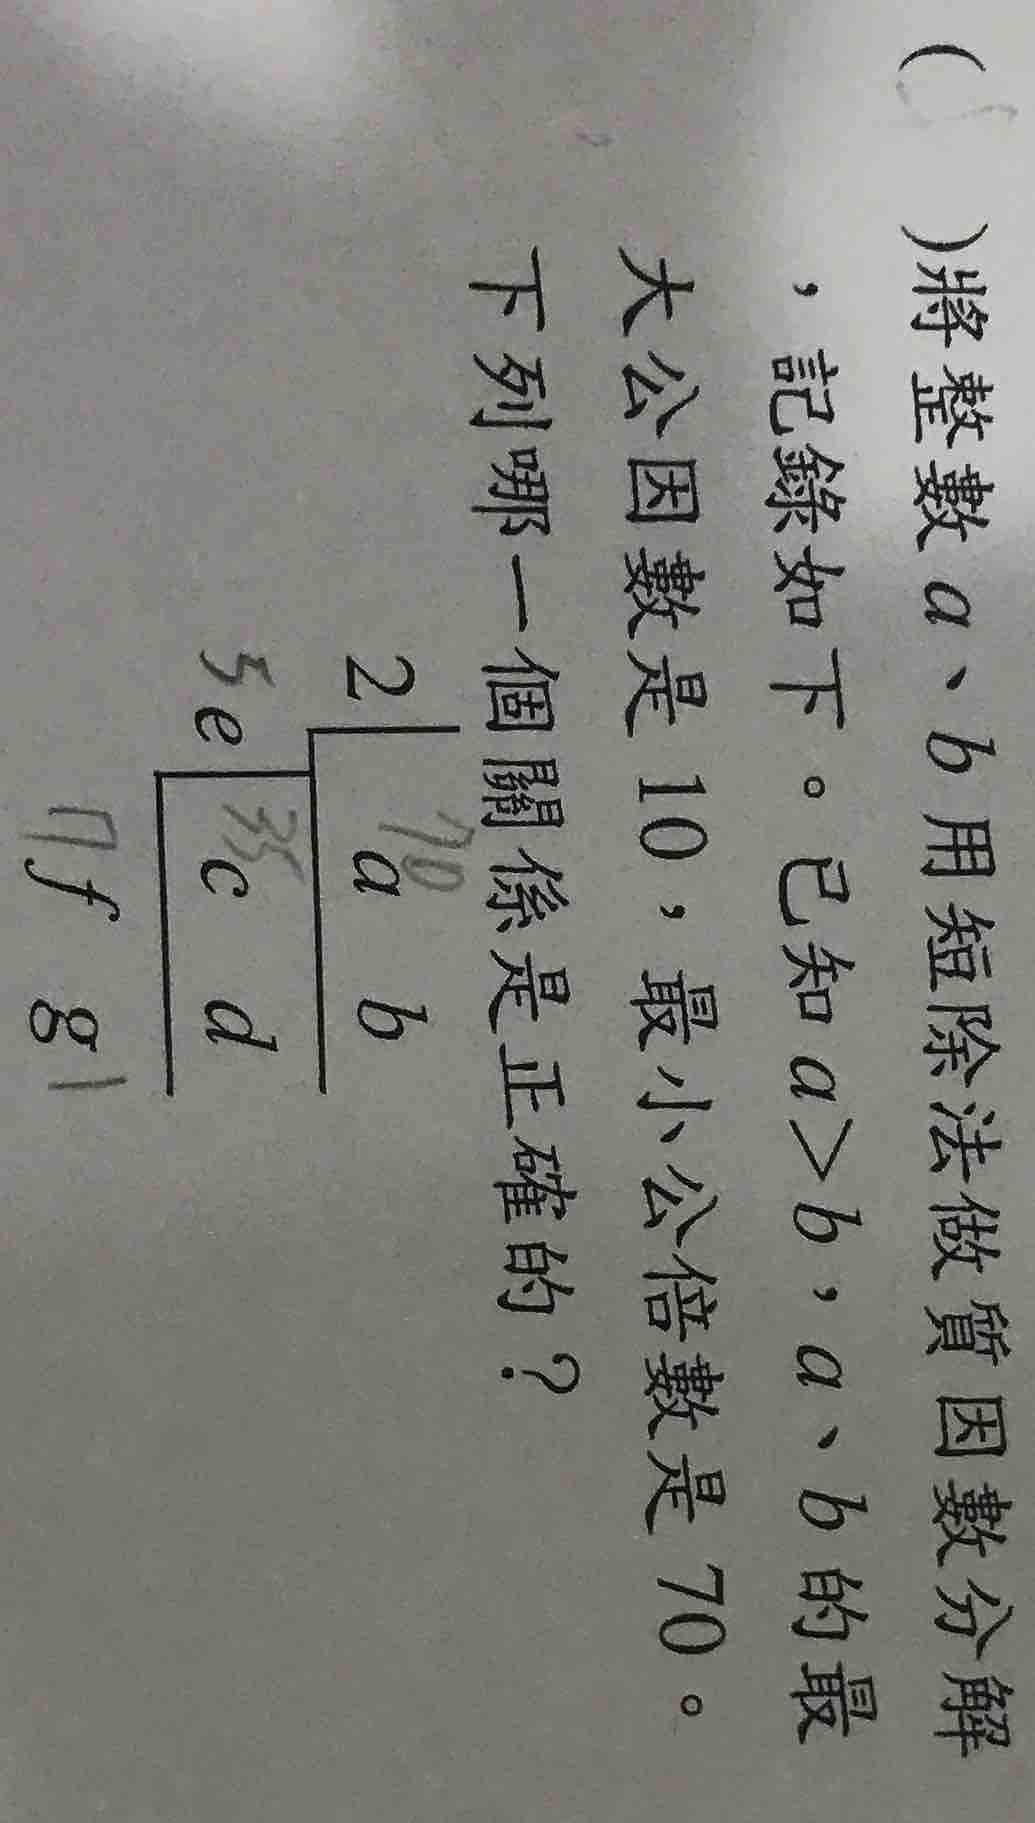 ( )將整數a、b用短除法做質因數分解
，記錄如下。已知a＞b，a、b的最
大公因數是10，最小公倍數是70。
下列哪一個關係是正確的？
70
2 a b
35
5 e c d
7 f g 1